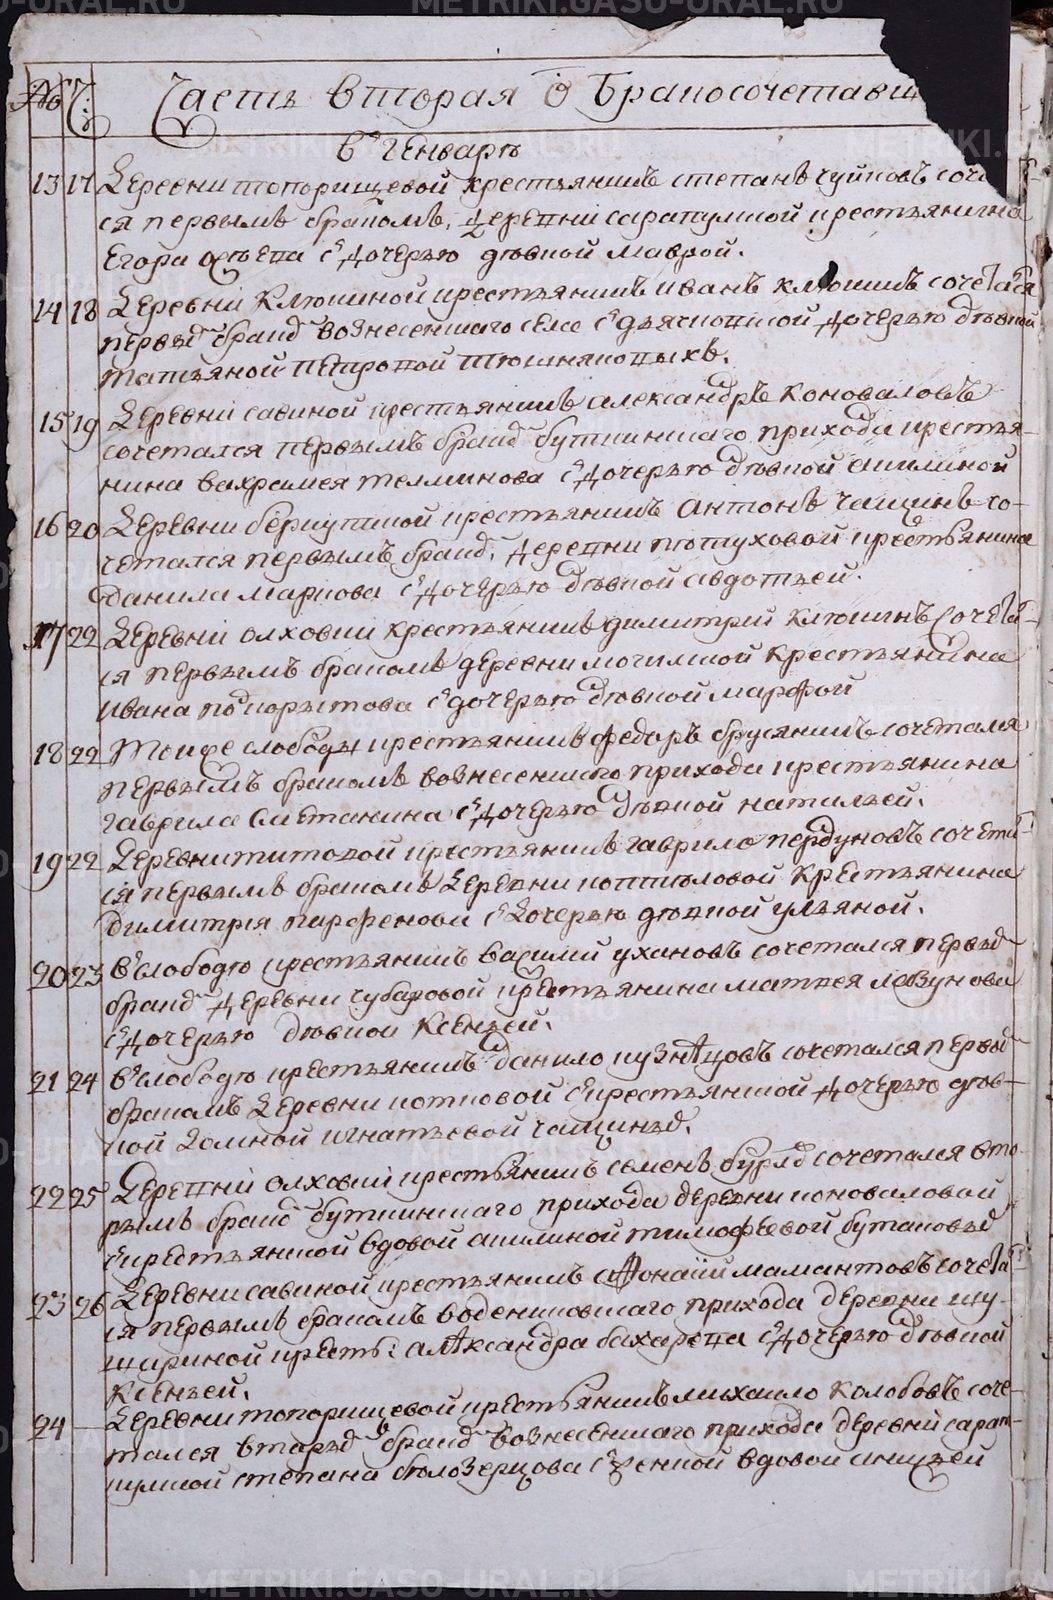 № Ч: Часть вторая ѿ Бракосочетавш
в Генваръ
13 17 Деревни топорищевой крестьянинъ степанъ чуйковъ соче
ся первымъ бракомъ, Деревни сарапулкой крестьянина
Егора с Дочерью дѣвкой маврой.
14 18 Деревни Клюкиной крестьянинъ иванъ клюкинъ сочетася
первы бракд вознесенскаго села с дьячковской Дочерью дѣвкой
татьяной петровой тюшняковыхъ.
15 19 Деревни савиной крестьянинъ александръ коноваловъ
сочетался первымъ бракд буткинскаго прихода крестья-
нина вахрамея телминова с Дочерью дѣвкой акилиной
16 20 Деревни беркутской крестьянинъ Антонъ чащинъ со-
четался первымъ бракд, Деревни пѣтуховой крестьянина
Данила маркова с Дочерью дѣвкой авдотьей.
17 22 Деревни олховки крестьянинъ димитрий клюкинъ сочета
ся первымъ бракомъ деревни мочилской крестьянина
ивана подкорытова с дочерью дѣвкой марфой
18 22 Тоиже слободы крестьянинъ федоръ брусянинъ сочетался
первымъ бракомъ вознесенского прихода крестьянина
гаврила сметанина с Дочерью дѣвкой натальей.
19 22 Деревни титовой крестьянинъ гаврило пердуновъ сочета
ся первымъ бракомъ Деревни коптяловой крестьянина
Димитрия парфенова с Дочерью дѣвкой ульяной.
20 23 в слободѣ крестьянинъ василий ухановъ сочетался первы
бракд Деревни чубаровой крестьянина матвея лабзунова
с Дочерью дѣвкой ксеньей.
21 24 в слободѣ крестьянинъ данило кузнецовъ сочетался первы
бракомъ Деревни котковой с крестьянской Дочерью дѣв-
кой Домной игнатьевой чащины.
22 25 Деревни олховки крестьянинъ семенъ сочетался вто
рымъ бракд буткинскаго прихода деревни коноваловой
с крестьянской вдовой акилиной тимофѣевой бутаковы
23 26 Деревни савиной крестьянинъ афонасий мамантовъ сочета
ся первымъ бракомъ воденниковскаго прихода деревни шу-
шариной крестъ: александра бахарева с Дочерью дѣвкой
ксеньей.
24 Деревни топорищевой крестьянинъ михаило колобовъ соче-
тался вторы бракд вознесенскаго прихода деревни сарап-
кулской степана бѣлозерцова с женкой вдовой
METRIKI.GASO-URAL.RU